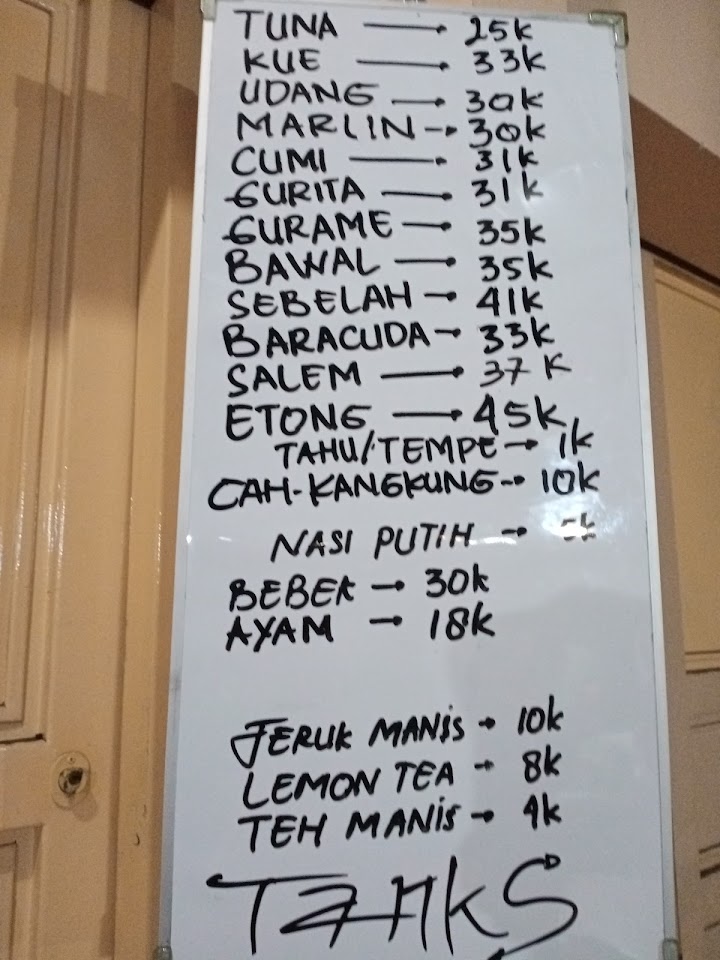 TUNA → 25k
KUE → 33k
UDANG → 30k
MARLIN → 30k
CUMI → 31k
GURITA → 31k
GURAME → 35k
BAWAL → 35k
SEBELAH → 41k
BARACUDA → 33k
SALEM → 37K
ETONG → 45k
TAHU/TEMPE → 1k
CAH-KANGKUNG → 10k
NASI PUTIH →
BEBEK → 30k
AYAM → 18k
JERUK MANiS → 10k
LEMON TEA → 8k
TEH MANiS → 4k
TANKS